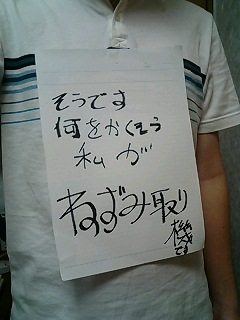 そうです
何をかくそう
私が
ねずみ取り
機です